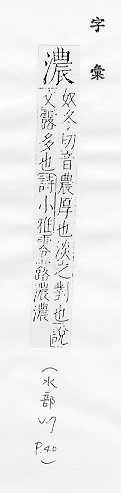 字彙
濃
奴冬切音農厚也淡之對也說
文露多也詩小雅零露濃濃
(水部
V.7
P.40)